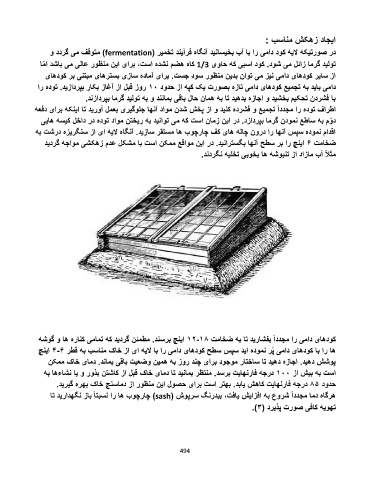 ایجاد زهکش مناسب :
در صورتیکه لایه کود دامی را با آب بخیسانید آنگاه فرآیند تخمیر (fermentation) متوقف می گردد و
تولید گرما زائل می شود. کود اسبی که حاوی 1/3 کاه هضم نشده است، برای این منظور عالی می باشد امّا
از سایر کودهای دامی نیز می توان بدین منظور سود جست. برای آماده سازی بسترهای مبتنی بر کودهای
دامی باید به تجمیع کودهای دامی تازه بصورت یک کپه از حدود ۱۰ روز قبل از آغاز بکار بپردازید. توده را
با فشردن تحکیم بخشید و اجازه بدهید تا به همان حال باقی بمانند و به تولید گرما بپردازند.
اطراف توده را مجدداً تجمیع و فشرده کنید و از پخش شدن مواد آنها جلوگیری بعمل آورید تا اینکه برای دفعه
دوّم به ساطع نمودن گرما بپردازد. در این زمان است که می توانید به ریختن مواد توده در داخل کیسه هایی
اقدام نموده سپس آنها را درون چاله های کف چارچوب ها مستقر سازید. آنگاه لایه ای از سنگریزه درشت به
ضخامت ۶ اینچ را بر سطح آنها بگسترانید. در این مواقع ممکن است با مشکل عدم زهکشی مواجه گردید
مثلاً آب مازاد از تنبوشه ها بخوبی تخلیه نگردند.
کودهای دامی را مجدداً بفشارید تا به ضخامت ۱۸-۱۲ اینچ برسند. مطمئن گردید که تمامی کناره ها و گوشه
ها را با کودهای دامی پُر نموده اید سپس سطح کودهای دامی را با لایه ای از خاک مناسب به قطر ۶-۴ اینچ
پوشش دهید. اجازه دهید تا ساختار موجود برای چند روز به همین وضعیت باقی بماند. دمای خاک ممکن
است به بیش از ۱۰۰ درجه فارنهایت برسد. منتظر بمانید تا دمای خاک قبل از کاشتن بذور و یا نشاءها به
حدود ۸۵ درجه فارنهایت کاهش یابد. بهتر است برای حصول این منظور از دماسنج خاک بهره گیرید.
هرگاه دما مجدداً شروع به افزایش یافت، بیدرنگ سرپوش (sash) چارچوب ها را نسبتاً باز نگهدارید تا
تهویه کافی صورت پذیرد (۳).
494